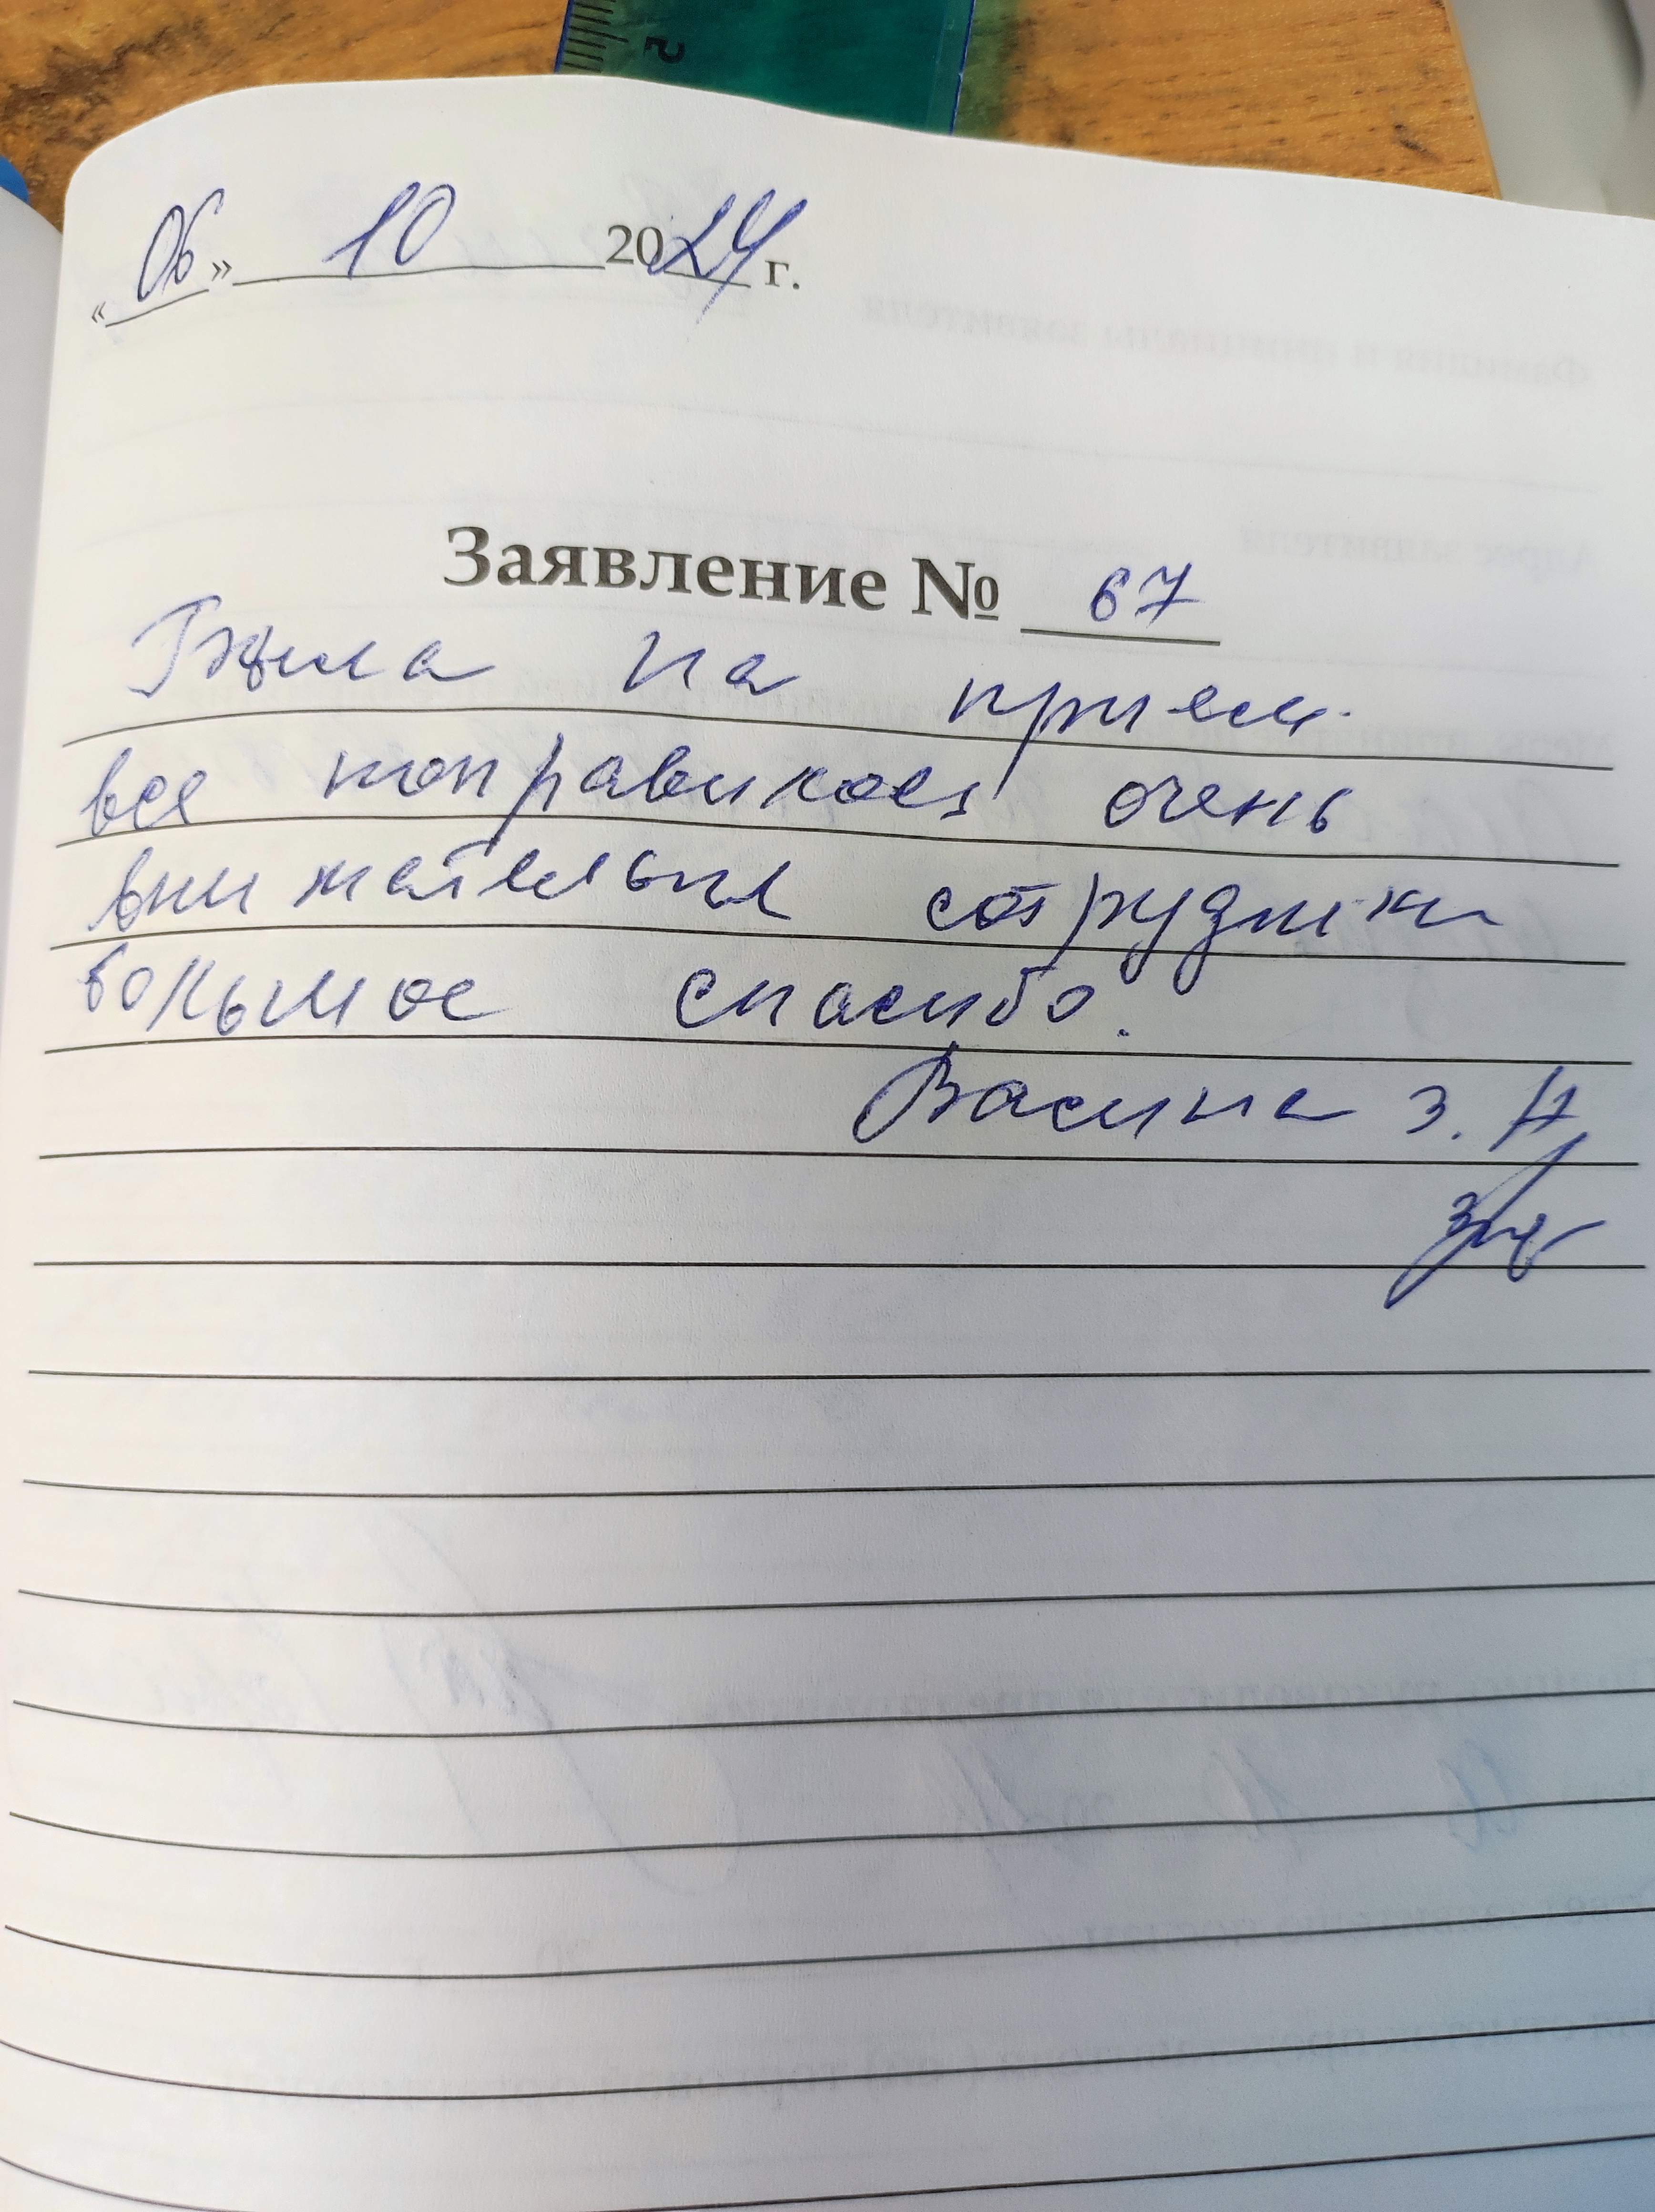 «06» 10 2024 г.
Заявление № 67
Была на прием.
все понравилось очень
внимательные сотрудники
большое спасибо.
Васина З. Н